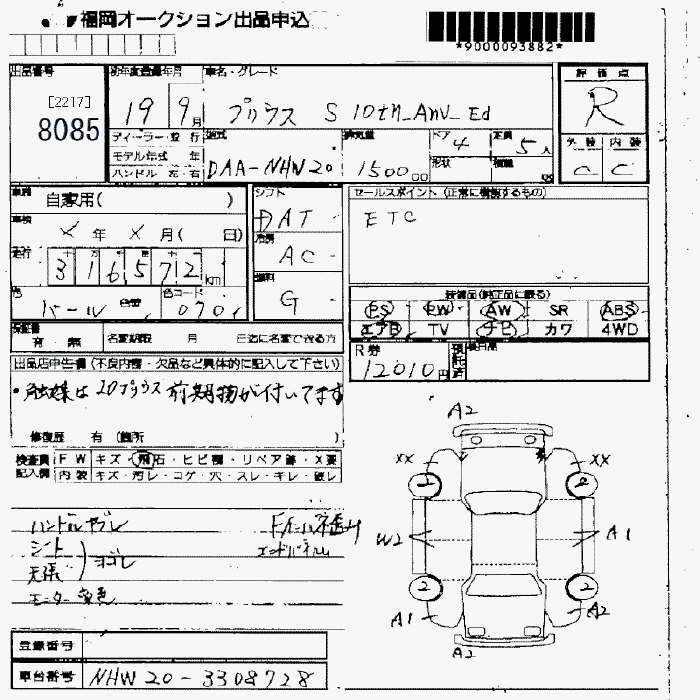 福岡オークション出品申込
*9000093882*
出品番号
[2217]
8085
初年度登録年月
19 9月
車名・グレード
プリウス S 10th_Anv_Ed
評価点
R
外装 内装
C C
ディーラー・並行
モデル年式 年
ハンドル 左・右
型式
DAA-NHW20
排気量
1500 cc
ドア
4
形状
定員
5人
車歴
自家用( )
車検
メ 年 メ 月( 日)
走行
316572km
色
パール
色替
色コード
070
シフト
DAT
冷房
AC
燃料
G
セールスポイント(正常に機能するもの)
ETC
装備品(純正品に限る)
PS PW AW SR ABS
エアB TV ナビ カワ 4WD
R券
12010円
預託済
保証書
有・無
名変期限 月 日迄に名変できる方
出品店申告欄(不良内容・欠品など具体的に記入して下さい)
・触媒は20プリウス前期物が付いてます
修復歴 有(箇所 )
検査員
記入欄
FW キズ・飛石・ヒビ・リペア跡・X要
内装 キズ・汚レ・コゲ・穴・スレ・キレ・破レ
ハンドルヤブレ
シート
天張
ヨゴレ
モニター変色
F/インハネ歪み
エンドパネル
A2
XX XX
2 2
W2 A1
2 2
A1 A2
A2
登録番号
車台番号 NHW20-3308728